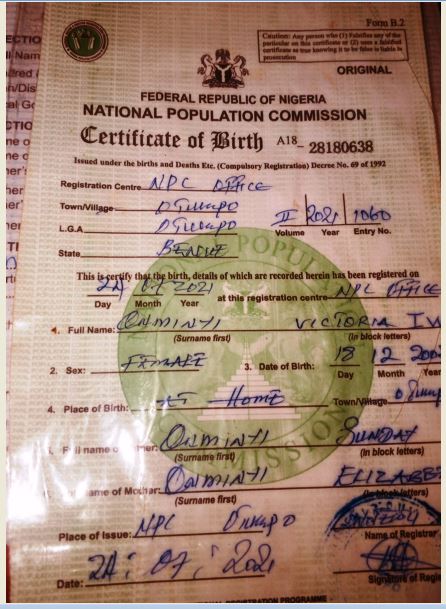 Form B.2
Caution: Any person who (1) Falsifies any of the
particular on this certificate or (2) uses a falsified
certificate as true knowing it to be false is liable to
prosecution
ORIGINAL
FEDERAL REPUBLIC OF NIGERIA
NATIONAL POPULATION COMMISSION
Certificate of Birth A18_ 28180638
Issued under the births and Deaths Etc. (Compulsory Registration) Decree No. 69 of 1992
Registration Centre NPC OFFICE
Town/Village OTUKPO
L.G.A OTUKPO II 2021 1060
Volume Year Entry No.
State BENUE
This is certify that the birth, details of which are recorded herein has been registered on
24 07 2021 at this registration centre NPC OFFICE
Day Month Year
1. Full Name: VICTORIA
(Surname first) (in block letters)
2. Sex: FEMALE 3. Date of Birth: 18 12
Day Month Year
4. Place of Birth: AT HOME Town/Village
Full name SUNDAY
(Surname first) (in block letters)
name of Mother:
(Surname first) (in block letters)
Place of Issue: NPC OTUKPO
Name of Registrar
Date: 24: 07: 2021